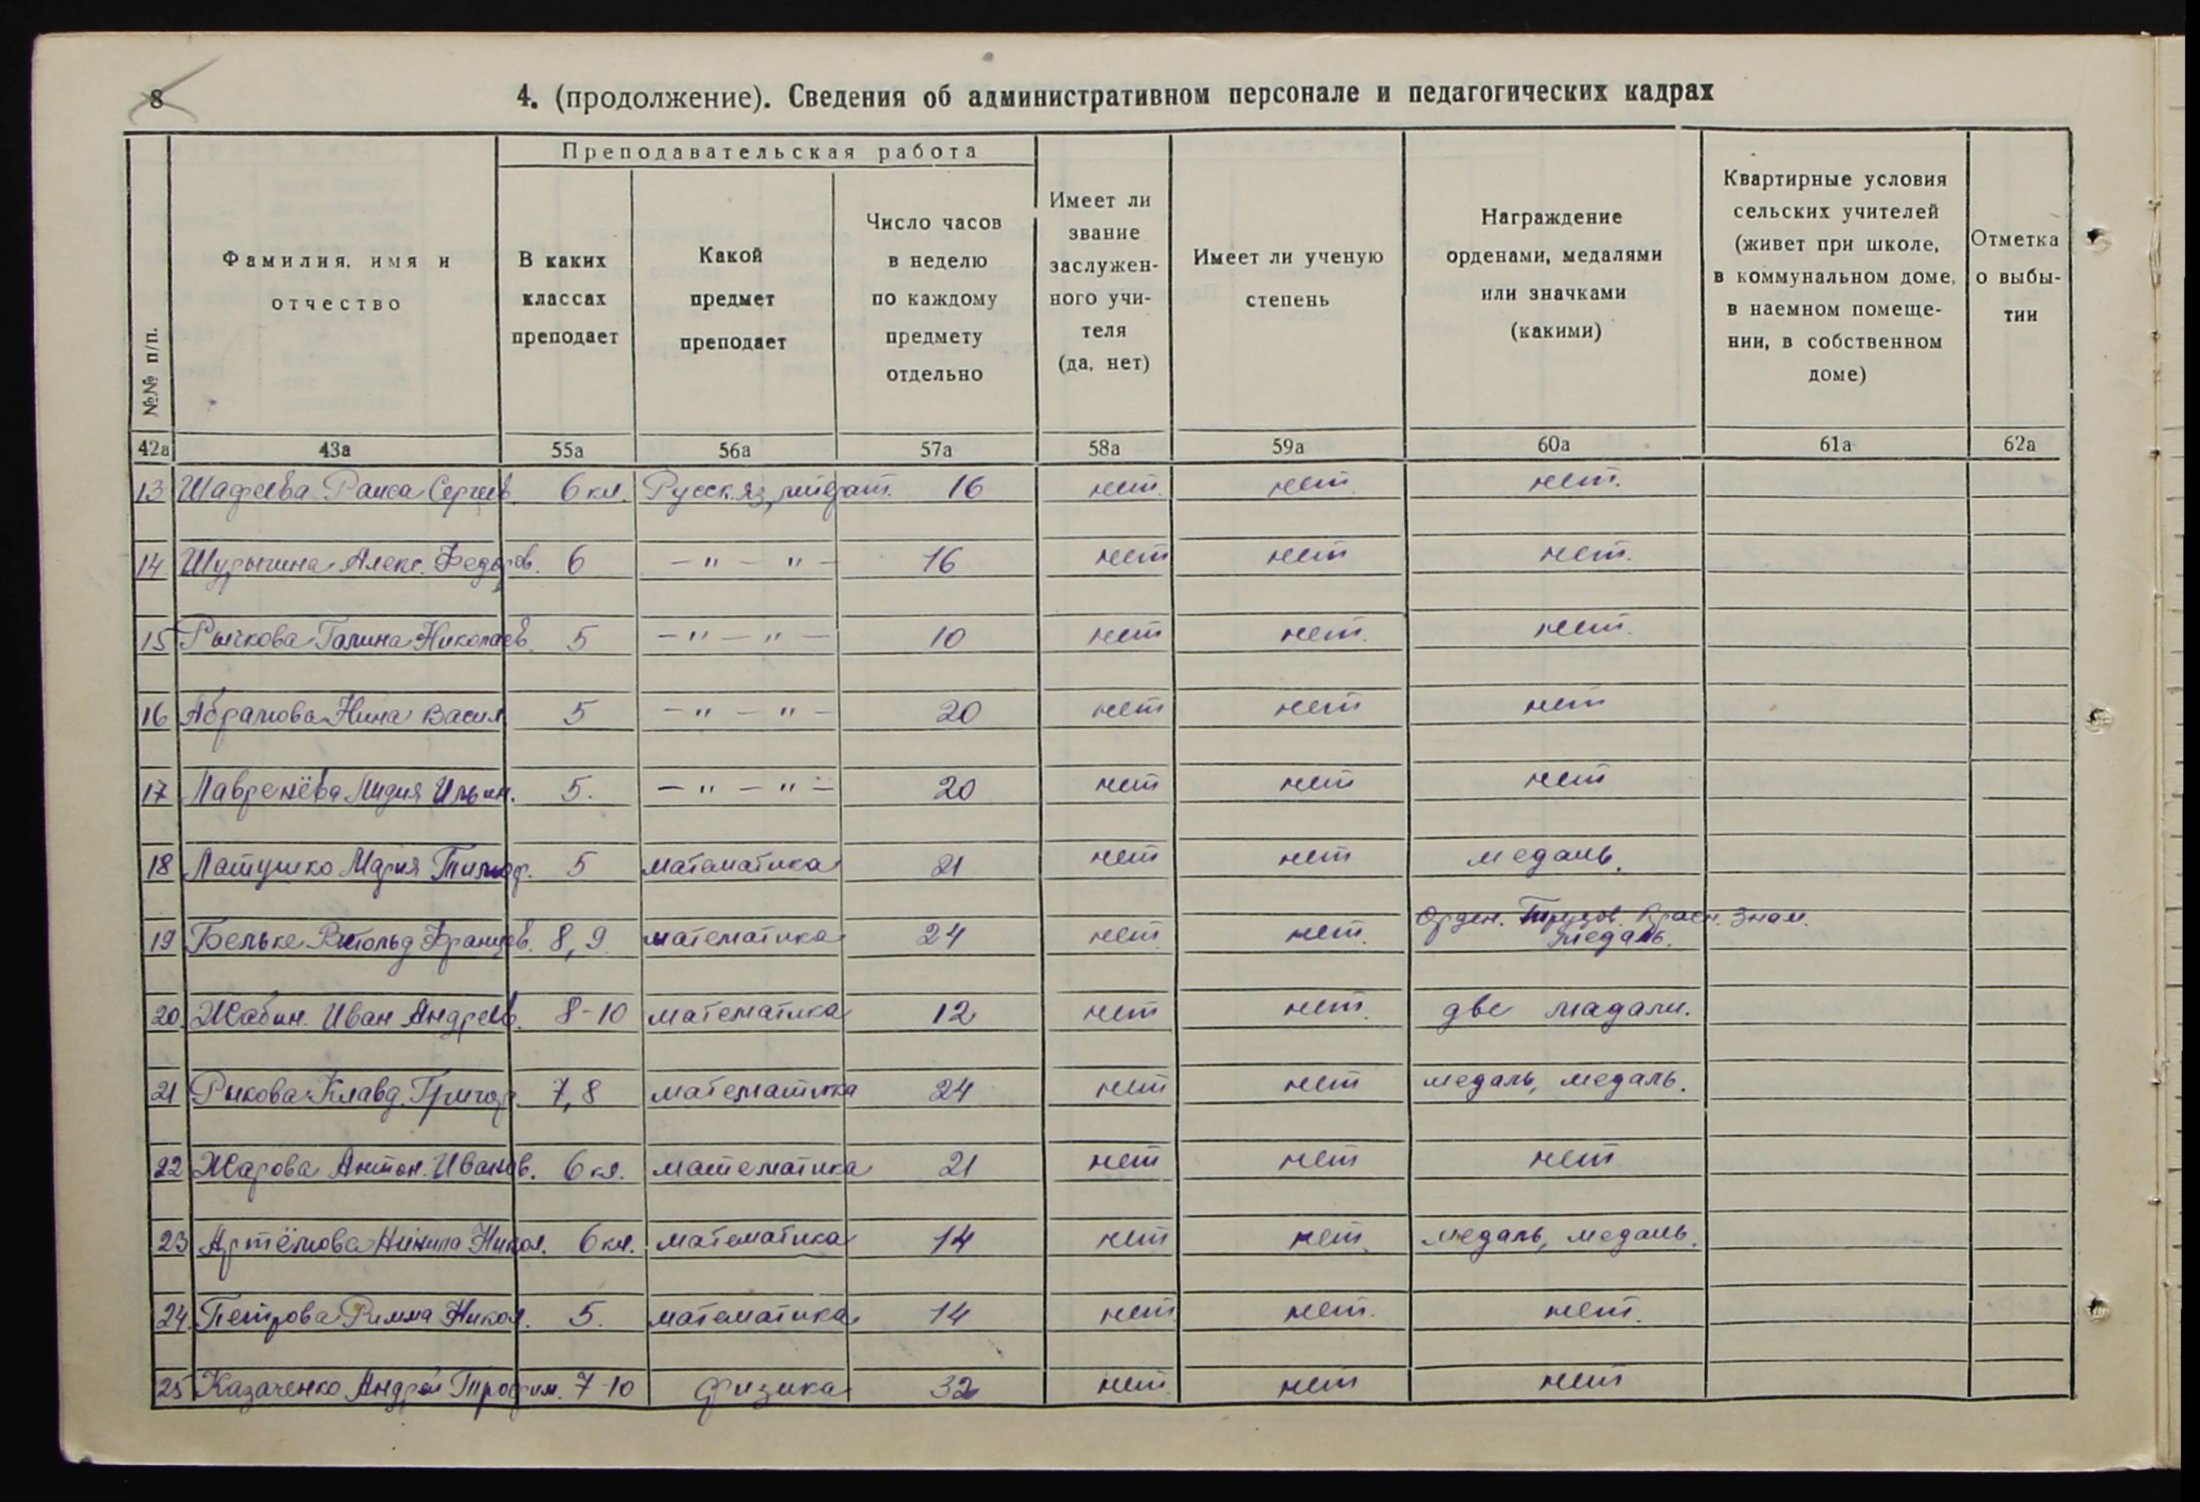 8
4. (продолжение). Сведения об административном персонале и педагогических кадрах
№№ п/п.
Фамилия, имя и
отчество
Преподавательская работа
В каких
классах
преподает
Какой
предмет
преподает
Число часов
в неделю
по каждому
предмету
отдельно
Имеет ли
звание
заслужен-
ного учи-
теля
(да, нет)
Имеет ли ученую
степень
Награждение
орденами, медалями
или значками
(какими)
Квартирные условия
сельских учителей
(живет при школе,
в коммунальном доме,
в наемном помеще-
нии, в собственном
доме)
Отметка
о выбы-
тии
42а 43а 55а 56а 57а 58а 59а 60а 61а 62а
13 Шафеева Раиса Сергеев. 6 кл. Русск. яз, 16 нет. нет. нет.
14 Шурыгина Алекс. Федоров. 6 — " — " — 16 нет нет нет.
15 Рычкова Галина Николаев. 5 — " — " — 10 нет нет. нет.
16 Абрамова Нина Васил 5 — " — " — 20 нет нет нет
17 Лавренёва Лидия Ильин. 5. — " — " — 20 нет нет нет
18 Латушко Мария Тимоф. 5 математика 21 нет нет медаль.
19 Бельке Витольд Францев. 8, 9. математика 24 нет. нет. Орден. Трудов. Красн. Знам.
медаль.
20. Жабин. Иван Андреев. 8-10 математика 12 нет нет. две мадали.
21 Рыкова Клавд. Григор. 7, 8 математика 24 нет нет медаль, медаль.
22 Жарова Антон. Иванов. 6 кл. математика 21 нет нет нет
23 Артёмова Нинила Никол. 6 кл. математика 14 нет нет. медаль, медаль.
24. Петрова Римма Никол. 5. математика 14 нет нет. нет.
25 Казаченко Андрей Трофим. 7-10 физика 32 нет. нет нет